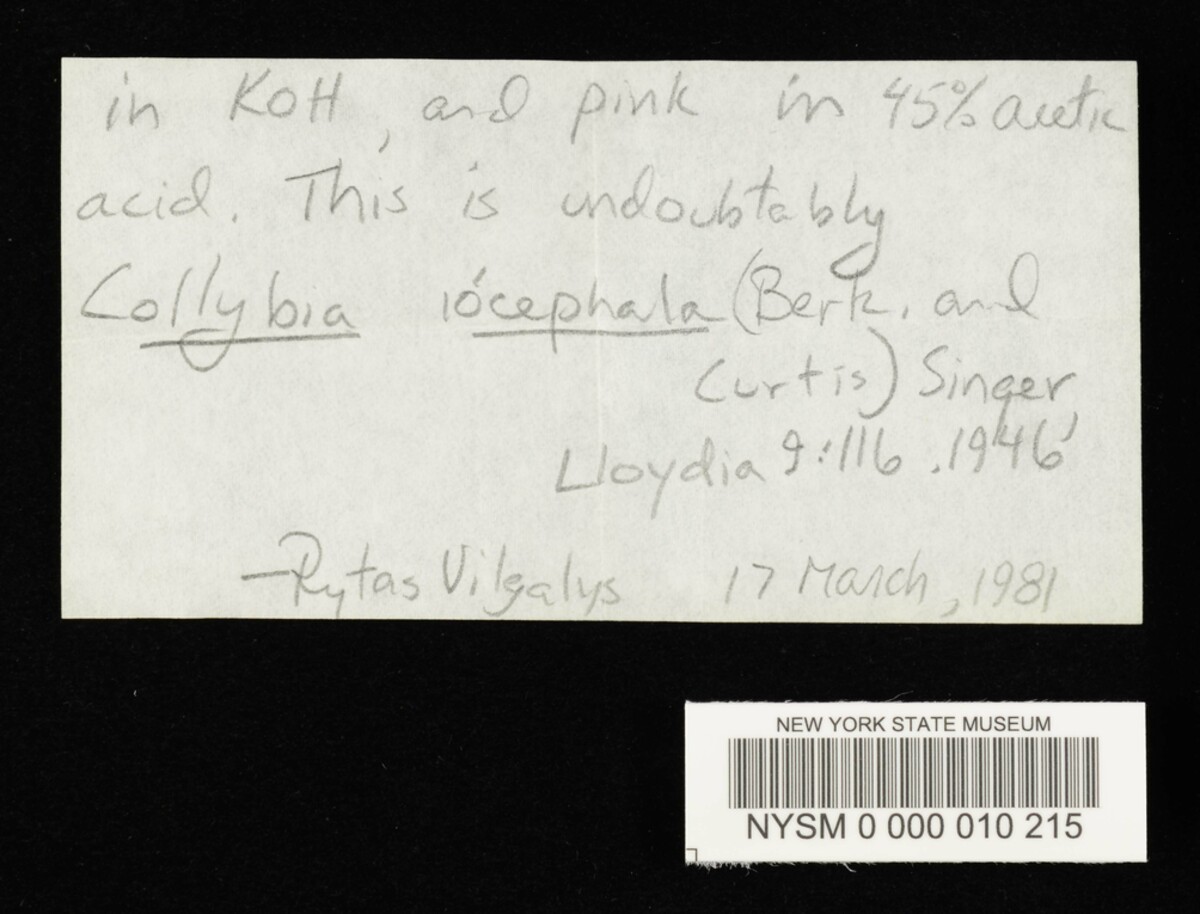 in KOH, and pink in 45% acetic
acid. This is undoubtably
Collybia iócephala (Berk. and
Curtis) Singer,
Lloydia 9:116. 1946
—Rytas Vilgalys 17 March, 1981
NEW YORK STATE MUSEUM
NYSM 0 000 010 215